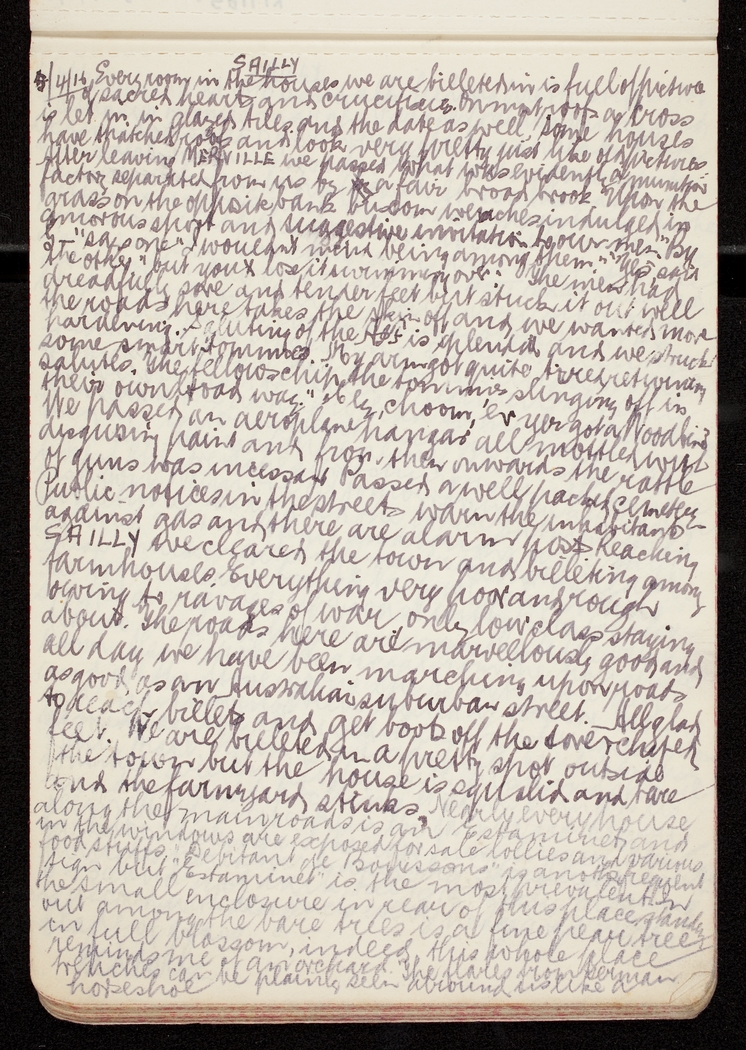 SAILLY
8/4/16 Every room in the houses we are billeted in is full of picture
of sacred hearts and crucifixes. On most roofs a cross
is let in in glazed tiles and the date as well. Some houses
have thatched roofs and look very pretty just like old pictures
After leaving MERVILLE we passed what was evidently a munition
factory separated from us by a fair broad brook. Upon the
grass on the opposite bank buxom wenches indulged in
amorous sport and suggestive invitation to our men. "By
"said one "I wouldn't mind being among them" "Yes said
the other "but you'd lose it swimming over". The men had
dreadfully sore and tender feet but stuck it out well
the roads here takes the skin off and we wanted more
hardening. Saluting of the is splendid and we struck
some smart tommies. My arm got quite tired returning
salutes. The fellows chip the tommies slinging off in
their own "toad way". choom, 'ev yer got a Woodbine?
We passed an aeroplane hangar all mottled with
disguising paint and from then onwards the rattle
of guns was incessant Passed a well packed cemetery
Public notices in the streets warn the inhabitants
against gas and there are alarm posts Reaching
SAILLY we cleared the town and billeting among
farmhouses. Everything very poor and rough
owing to ravages of war only low class staying
about. The roads here are marvellously good and
all day we have been marching upon roads
as good as an Australian suburban street. All glad
to reach billets and get boots off the sore chafed
feet. We are billeted in a pretty spot outside
the town but the house is squalid and bare
and the farmyard stinks. Nearly every house
along the main roads is an Estaminet and
in the windows are exposed for sale lollies and various
foodstuffs. "Debitant de Boissons" is another frequent
sign but "Estaminet" is the most prevalent. In
the small enclosure in rear of this place standing
out among the bare trees is a fine pear tree
in full blossom, indeed this whole place
reminds me of an orchard. The flares from German
trenches can be plainly seen around us like a
horseshoe